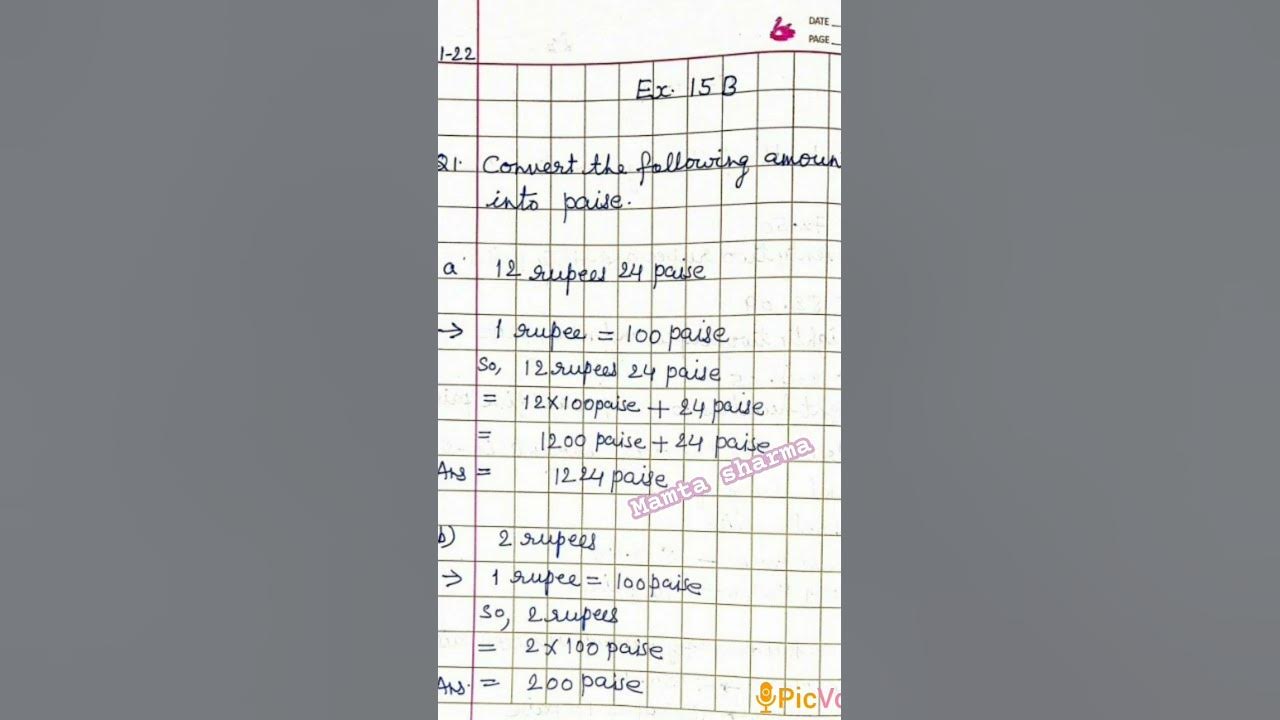 DATE
PAGE
1-22
Ex. 15 B
Q1. Convert the following amoun
into paise.
a 12 rupees 24 paise
→ 1 rupee = 100 paise
So, 12 rupees 24 paise
= 12×100 paise + 24 paise
= 1200 paise + 24 paise
Ans = 1224 paise
Mamta sharma
b) 2 rupees
→ 1 rupee = 100 paise
so, 2 rupees
= 2×100 paise
Ans. = 200 paise
PicVo